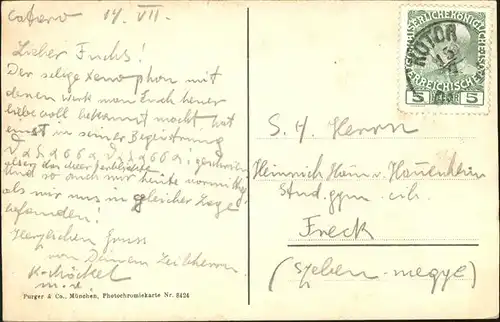 Cataro 14. VII.
Lieber Fuchs!
Der selige Xenophon mit
dessen werk man Euch heuer
liebevoll bekannt macht hat
einst in seiner Begeisterung
als er das Meer erblickte
Und so auch mir heute vormittag
als wir uns in gleicher Lage
befanden!
Herzlichen Gruss
von Deinem Leibherrn
m.d.
Purger & Co., München, Photochromiekarte Nr. 8424
KAISERLICHE KÖNIGLICHE
ÖSTERREICHISCHE
5 5
KOTOR
S. H. Herrn
Heinrich Hann v. Hannenheim
Stud. gym.
Freck
(Szeben-megye)